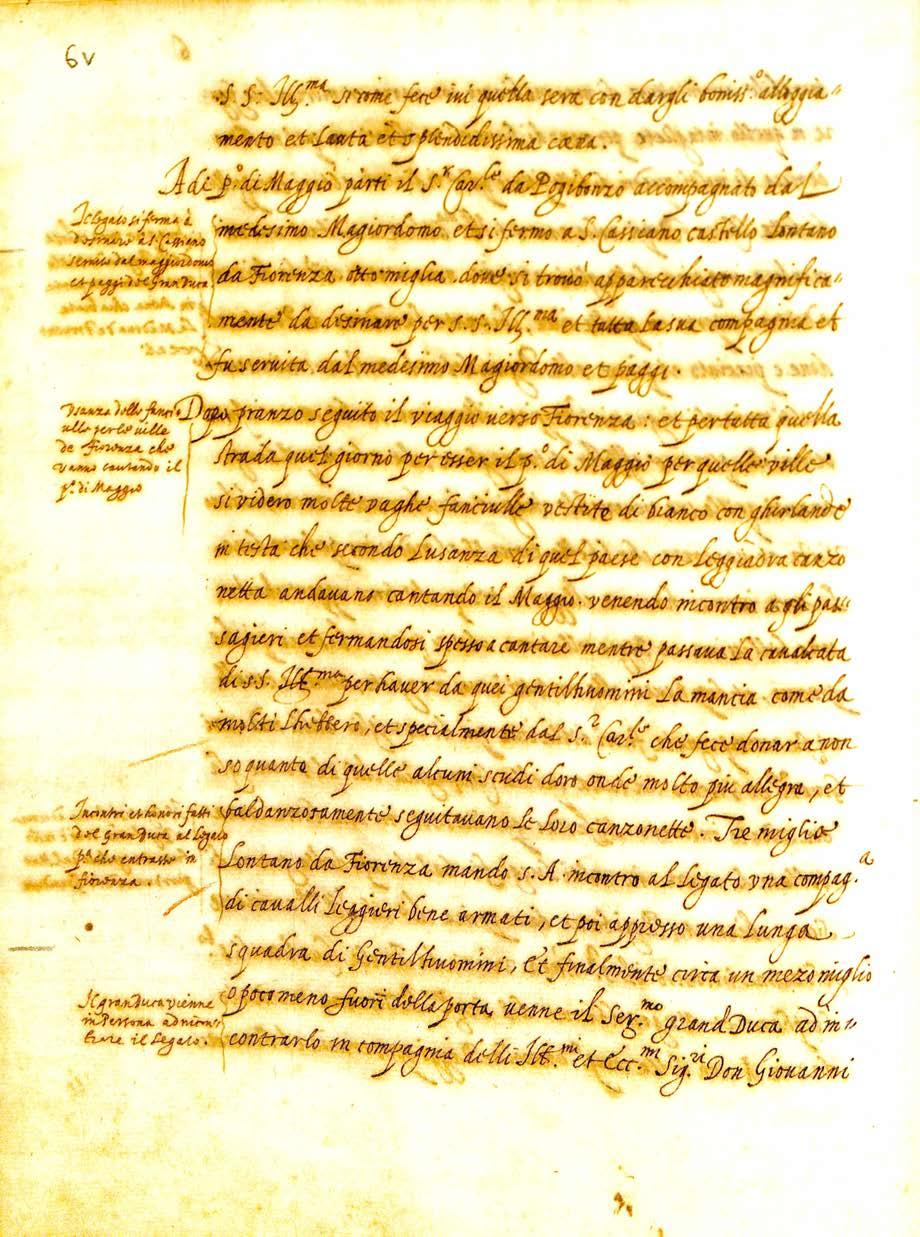 6v
S. S. Ill.ma si come fece ivi quella sera con dargli boniss.o alloggia=
mento et Lauta et splendidissima cæna.
Adi p.o di Maggio parti il S.r Car.le da Pogibonzo accompagnato dal
Il legato si ferma à
desinare à S. Casciano
servito dal maggiordomo
et paggi del Gran Duca
medesimo Magiordomo et si fermo a S. Cassiano castello Lontano
da Fiorenza otto miglia dove si trovò apparecchiato magnifica=
mente da desinare per S. S. Ill.ma et tutta La sua compagnia et
fu servita dal medesimo Magiordomo et paggi.
Usanza delle fanci=
ulle per le ville
de fiorenza che
vanno cantando il
p.o di Maggio
Dopo pranzo seguito il viaggio verso Fiorenza: et per tutta quella
strada quel giorno per esser il p.o di Maggio per quelle ville
si videro molte vaghe fanciulle vestite di bianco con ghirlande
in testa che secondo Lusanza di quel paese con Leggiadra canzo
netta andavano cantando il Maggio. venendo incontro a gli pas=
sagieri et fermandosi spesso a cantare mentre passava La cavalcata
di S. S. Ill.ma per haver da quei gentilhuomini La mancia come da
molti Lhebbero, et specialmente dal S.r Car.le che fece donar a non
so quante di quelle alcuni scudi doro onde molto piu allegra, et
baldanzosamente seguitavano Le Loro canzonette. Tre miglia
Incontri et honori fatti
del Gran Duca al Legato
p.a che entrasse in
fiorenza.
Lontano da Fiorenza mando S. A. incontro al Legato una compag.a
di cavalli Leggieri bene armati, et poi appresso una Lunga
squadra di Gentilhuomini, et finalmente circa un mezo miglio
Il gran Duca vienne
in Persona ad incon=
trare il Legato.
o poco meno fuori della porta venne il Ser.mo grand Duca ad in=
contrarlo in compagnia delli Ill.mi et Ecc.mi Sig.ri Don Giovanni